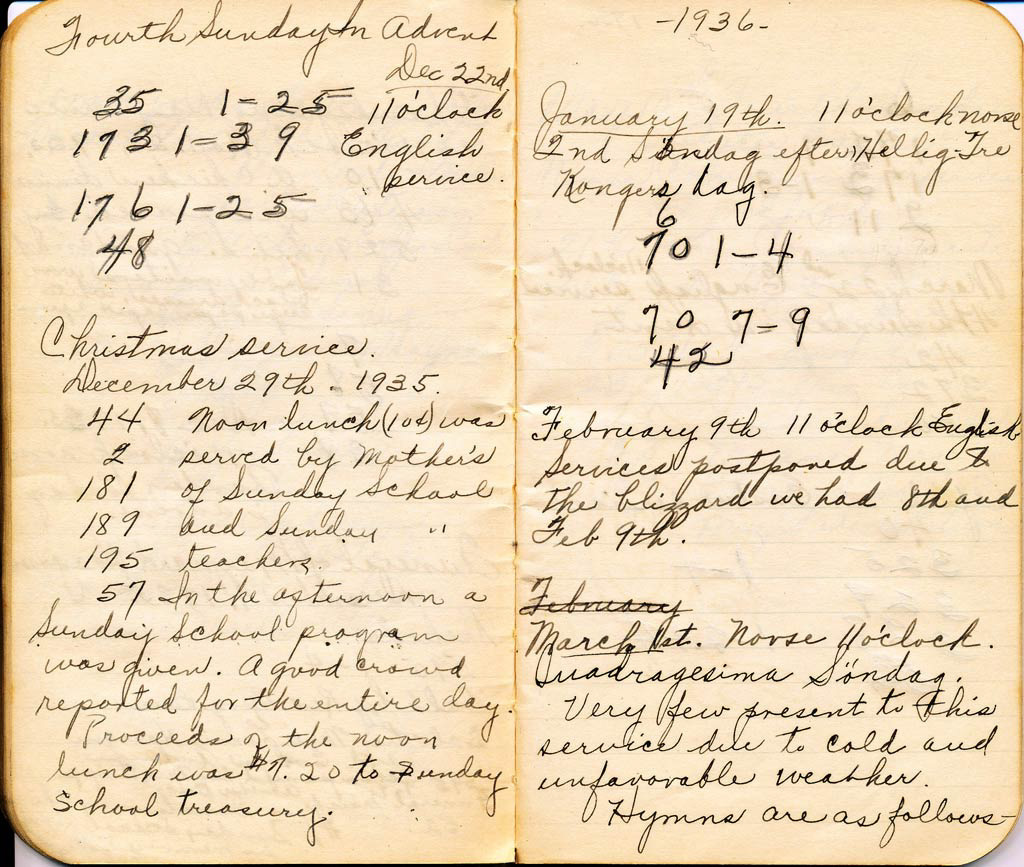 Fourth Sunday In Advent
Dec 22nd
35 1-25 11 o'clock
173 1-39 English
service.
176 1-25
48
Christmas service.
December 29th - 1935.
44 Noon lunch (10¢) was
2 served by Mother's
181 of Sunday School
189 and Sunday "
195 teachers.
57 In the afternoon a
Sunday School program
was given. A good crowd
reported for the entire day.
Proceeds of the noon
lunch was $7.20 to Sunday
School treasury.
-1936-
January 19th. 11 o'clock norse
2nd Söndag efter Hellig-Tre
Kongers dag.
6
70 1-4
70 7-9
42
February 9th 11 o'clock English
Services postponed due to
the blizzard we had 8th and
Feb 9th.
February
March 1st. Norse 11 o'clock.
Quadragesima Söndag.
Very few present to this
service due to cold and
unfavorable weather.
Hymns are as follows-